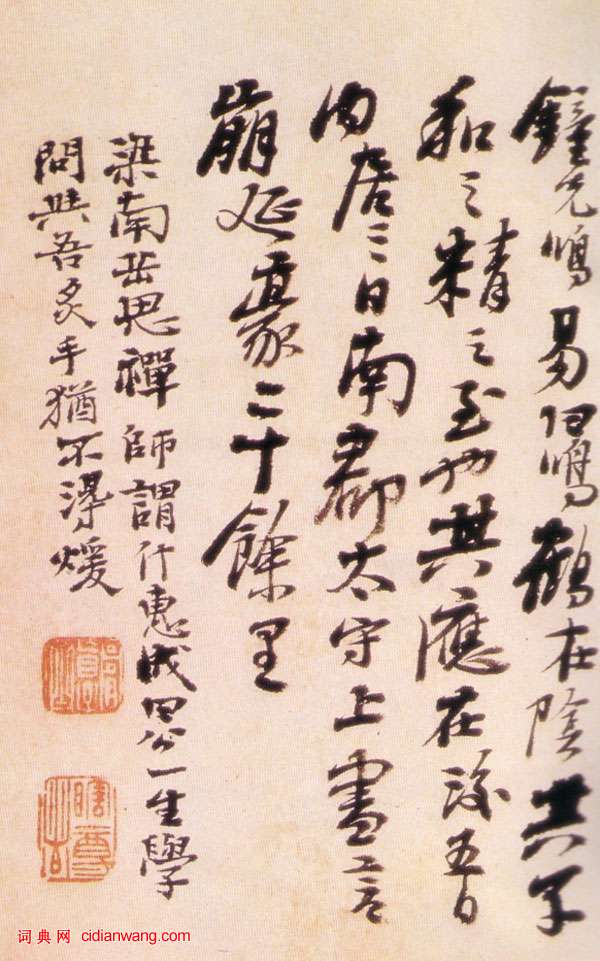 鐘先鳴易曰鳴鶴在陰其子
和之精之至也其應在後五日
內居三日南郡太守上書言
崩延袤二十餘里
梁南岳思禪師謂什惠成曰公一生學
問與吾炙手猶不得煖
词典网 cidianwang.com